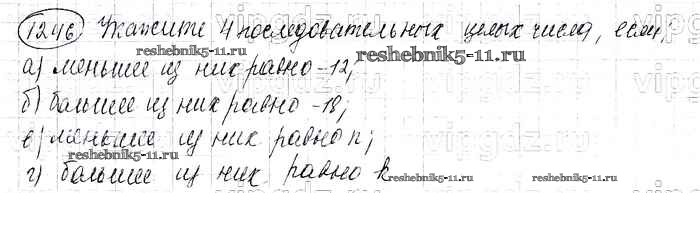 1246 Укажите 4 последовательных целых числа, если
reshebnik5-11.ru
reshebnik5-11.ru
а) меньшее из них равно -12;
б) большее из них равно -18;
в) меньшее из них равно n;
reshebnik5-11.ru
г) большее из них равно k
reshebnik5-11.ru
reshebnik5-11.ru
vipgdz.ru